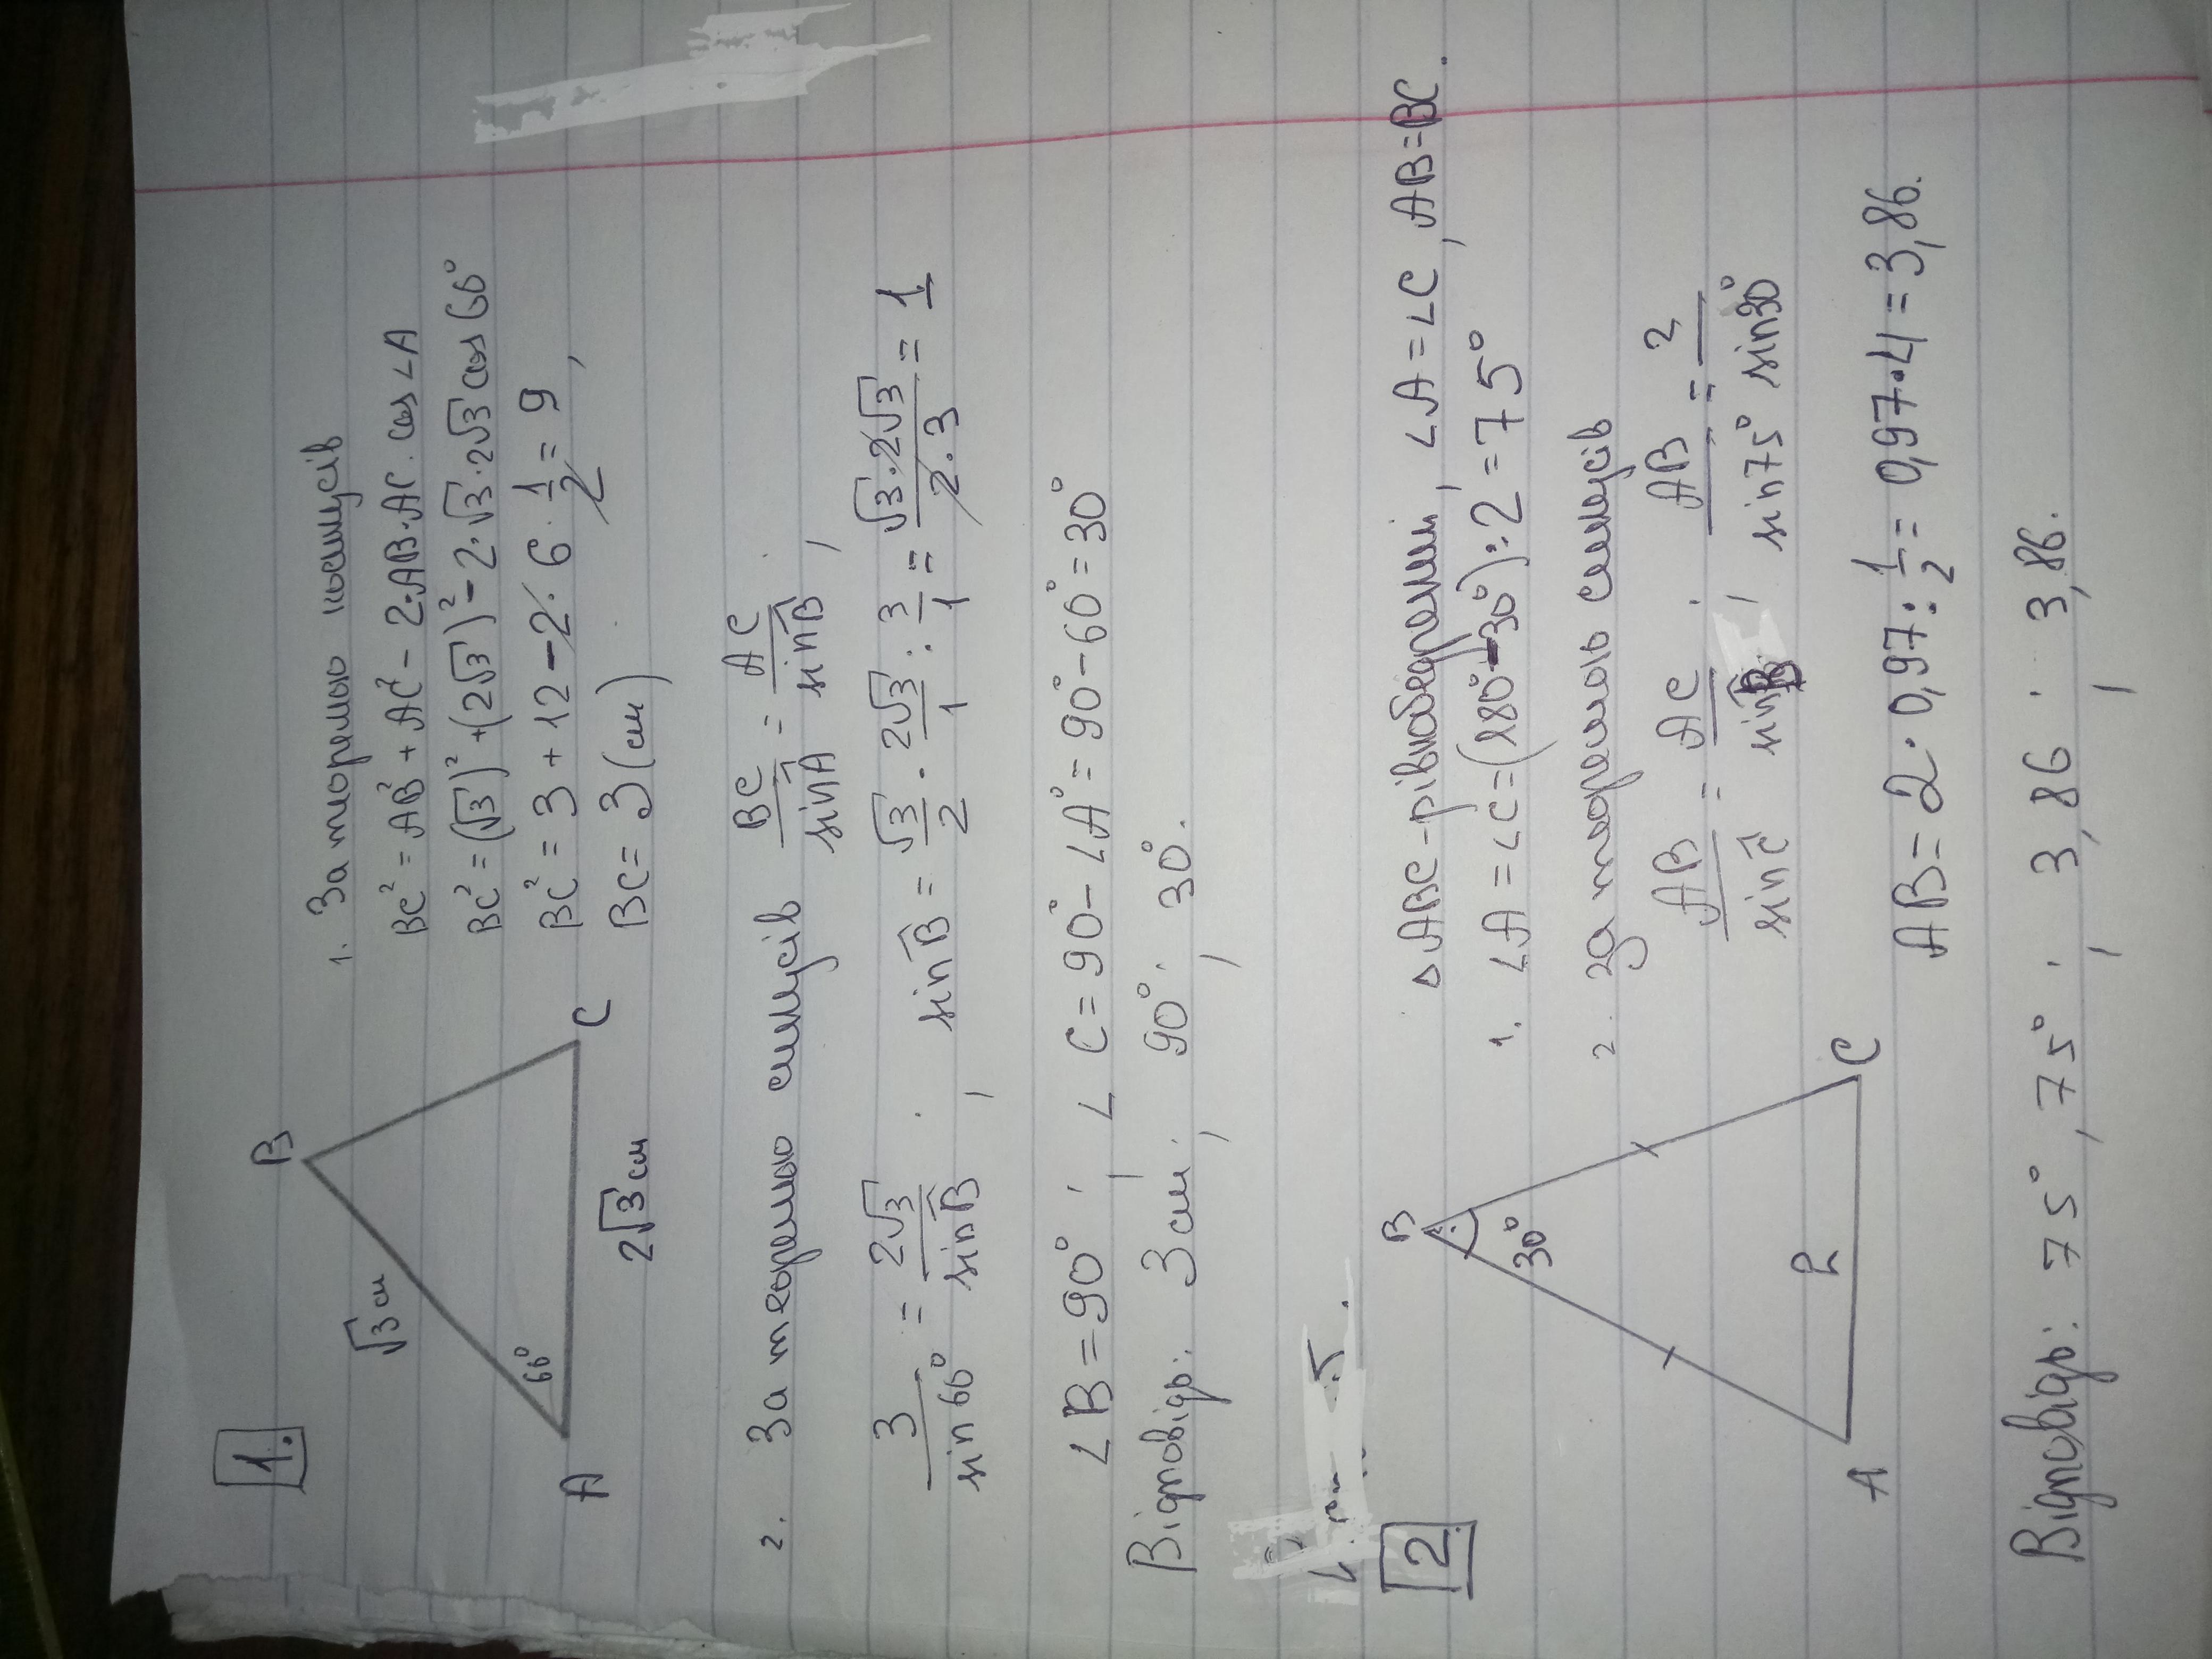 1.
B
√3 см
60°
A
C
2√3 см
1. За теоремою косинусів
BC² = AB² + AC² - 2·AB·AC·cos ∠A
BC² = (√3)² + (2√3)² - 2·√3·2√3 cos 60°
BC² = 3 + 12 - 2·6·1/2 = 9 ,
BC = 3 (см)
2. За теоремою синусів BC/sin A = AC/sin B ;
3/sin 60° = 2√3/sin B ; sin B = √3/2 · 2√3/1 : 3/1 = √3·2√3/2·3 = 1
∠B = 90° ; ∠C = 90° - ∠A° = 90° - 60° = 30°
Відповідь: 3 см; 90°; 30°.
2.
B
30°
A
2
C
△ABC - рівнобедрений, ∠A = ∠C, AB = BC.
1. ∠A = ∠C = (180° - 30°) : 2 = 75°
2. За теоремою синусів
AB/sin C = AC/sin B ; AB/sin 75° = 2/sin 30°
AB = 2·0,97 : 1/2 = 0,97·4 = 3,86.
Відповідь: 75°, 75°; 3,86; 3,86.